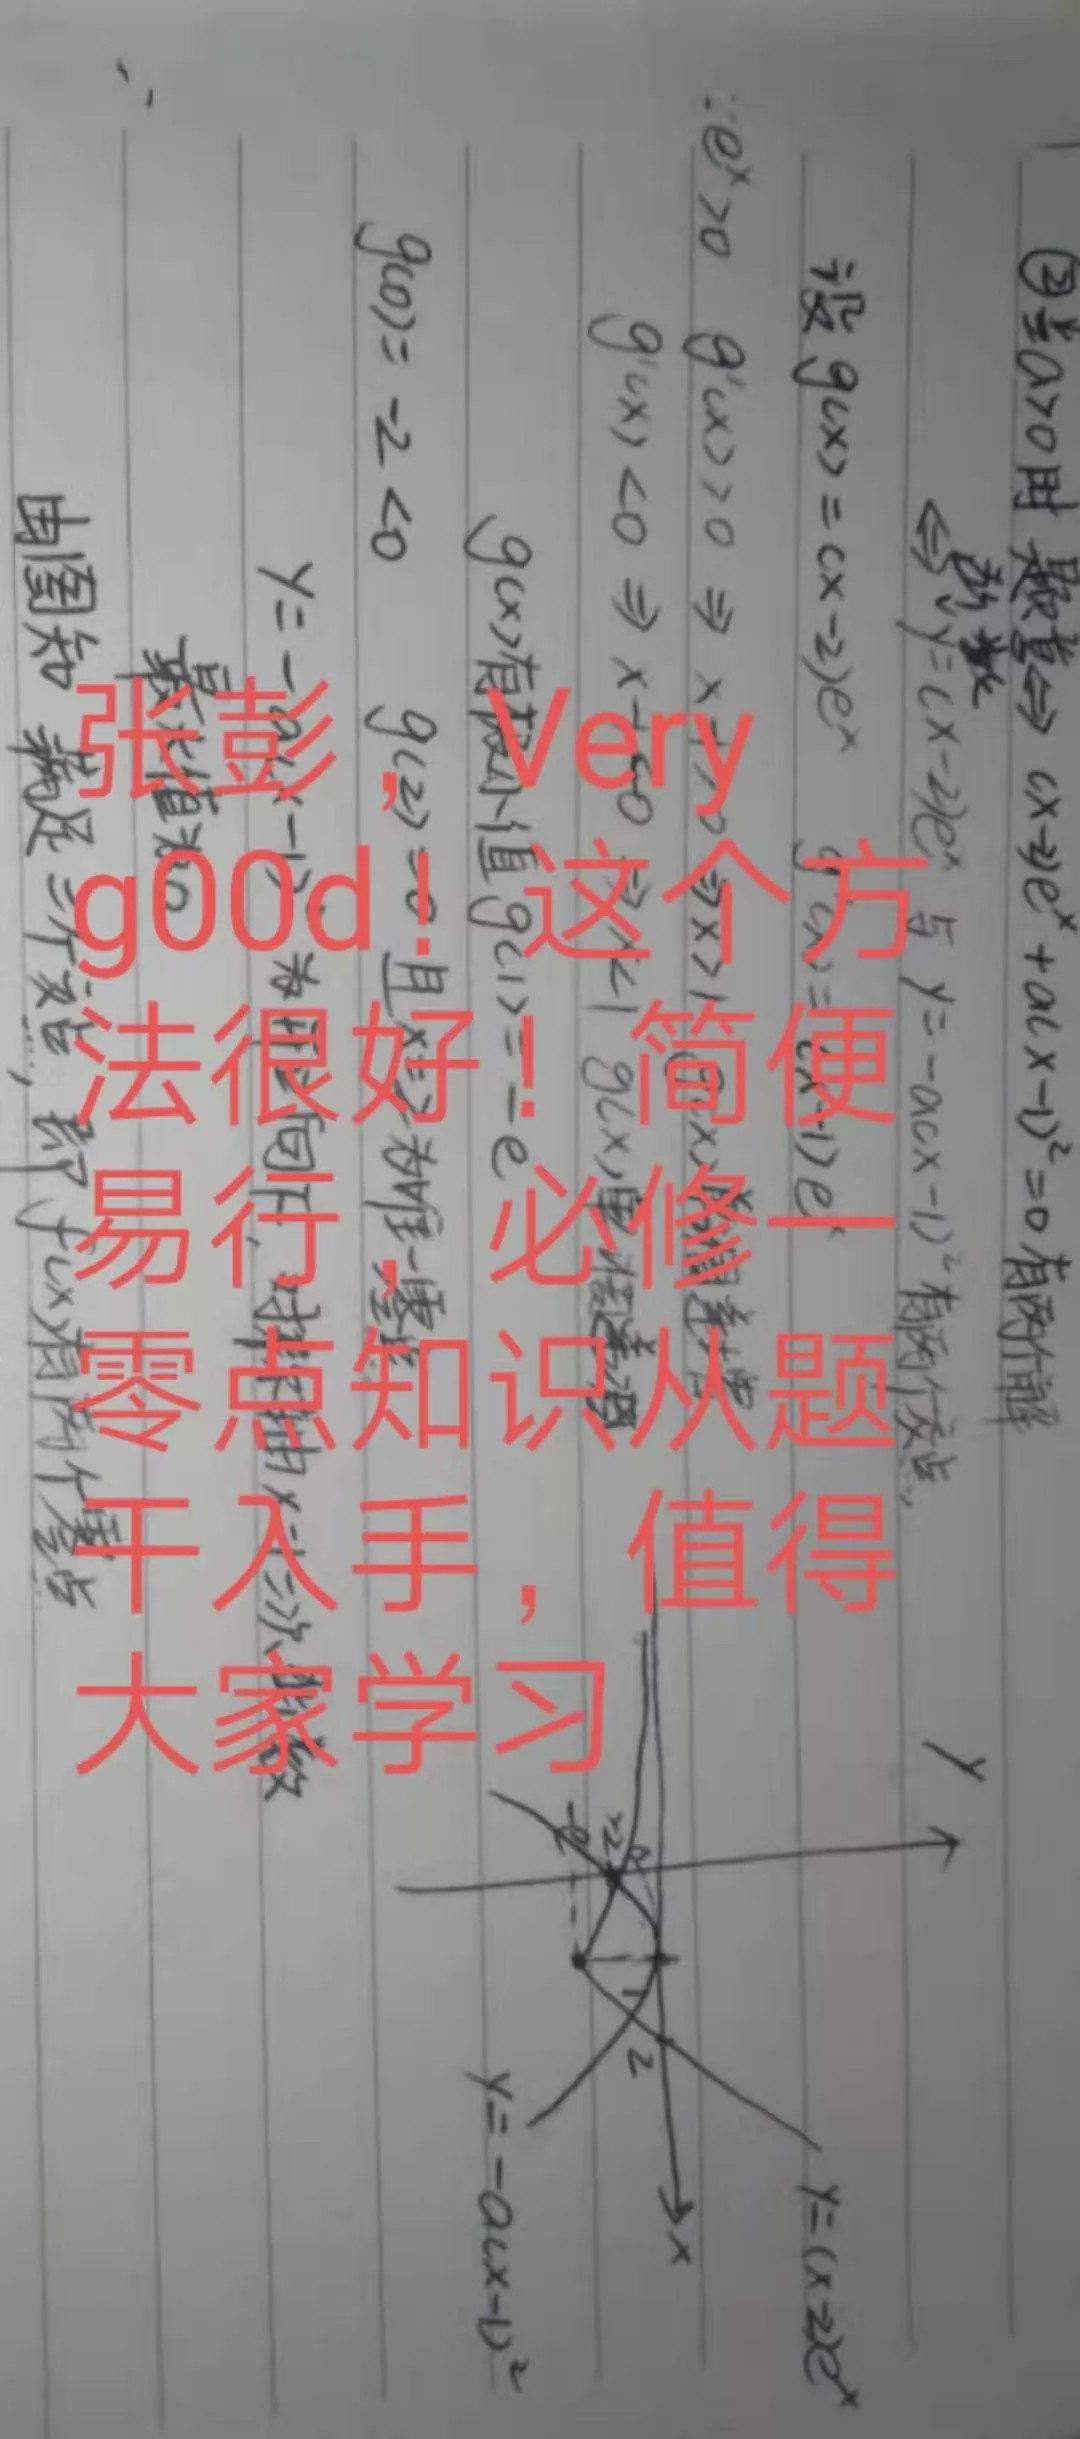 ②当a>0时 题意⇔ (x-2)e^x+a(x-1)²=0有两个解
⇔ 函数 y=(x-2)e^x 与 y=-a(x-1)²有两个交点
设 g(x)=(x-2)e^x g'(x)=(x-1)e^x
∵e^x>0 g'(x)>0 ⇒ x-1>0 ⇒x>1
g'(x)<0 ⇒ x-1<0 ⇒x<1 g(x)单调递减
g(x)有极小值g(1)=-e
g(0)=-2<0 g(2)=0 且x=2为唯一零点
y=-a(x-1)² 为开口向下, 对称轴x=1二次函数
最大值为0
∴
由图知 满足二个交点, 即f(x)有两个零点
y
x
-e
-2
1
2
y=(x-2)e^x
y=-a(x-1)²
张彭，Very
g00d！这个方
法很好！简便
易行，必修一
零点知识从题
干入手，值得
大家学习